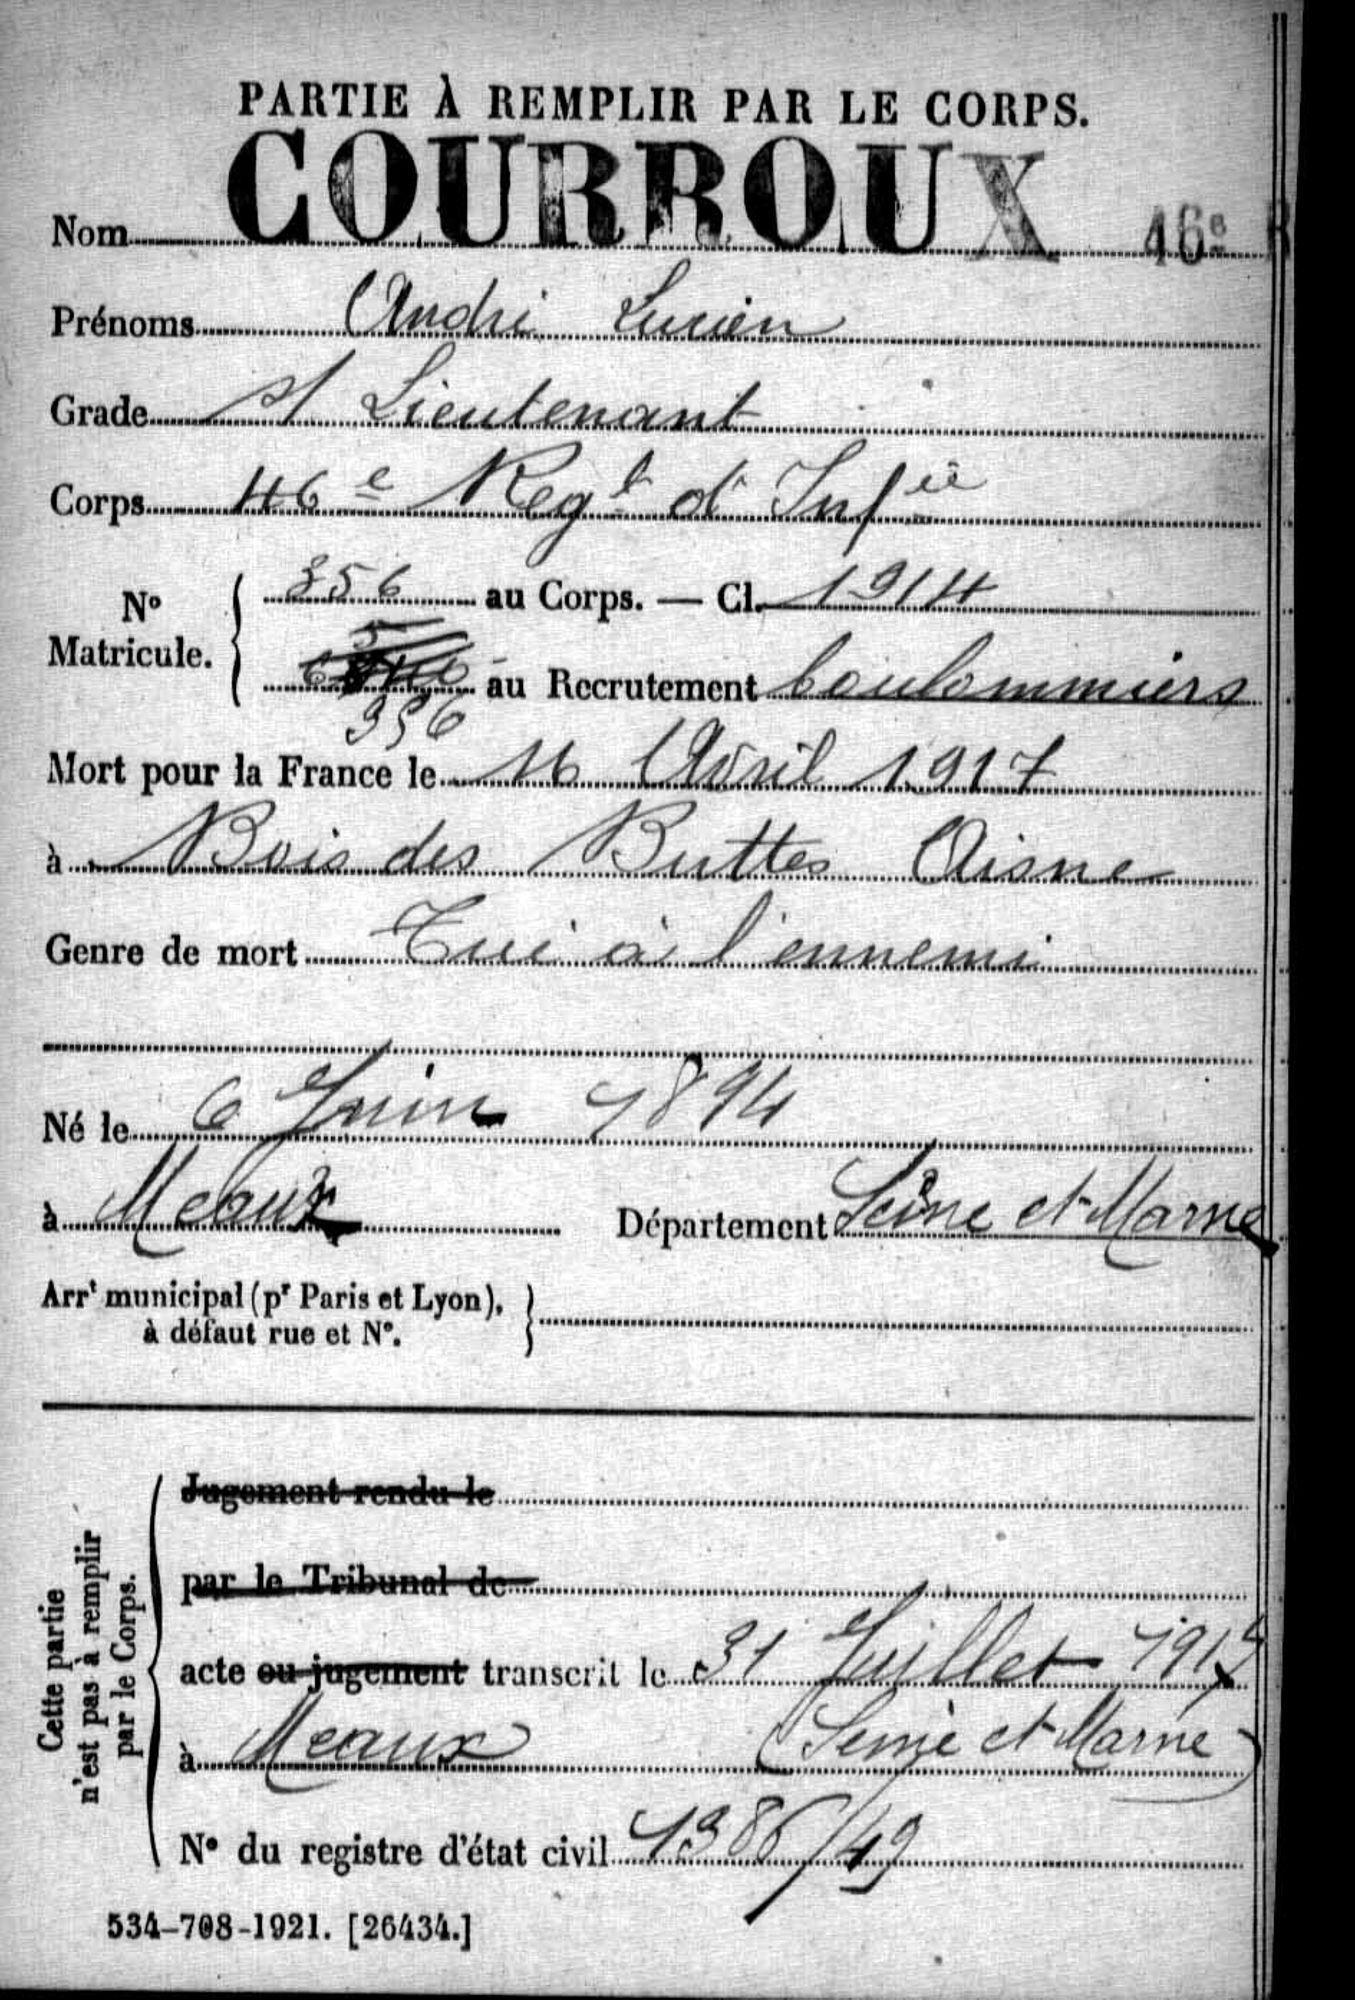 PARTIE À REMPLIR PAR LE CORPS.
Nom COURROUX 46e R
Prénoms André Lucien
Grade s/ Lieutenant
Corps 46e Regt d'Infie
No Matricule. 356 au Corps. — Cl. 1914
au Recrutement Coulommiers
356
Mort pour la France le 16 Avril 1917
à Bois des Buttes Aisne
Genre de mort Tué à l'ennemi
Né le 6 Juin 1894
à Meaux Département Seine et Marne
Arrt municipal (pr Paris et Lyon),
à défaut rue et No.
Cette partie
n'est pas à remplir
par le Corps.
Jugement rendu le
par le Tribunal de
acte ou jugement transcrit le 31 Juillet
à Meaux (Seine et Marne)
No du registre d'état civil 1386/49
534-708-1921. [26434.]